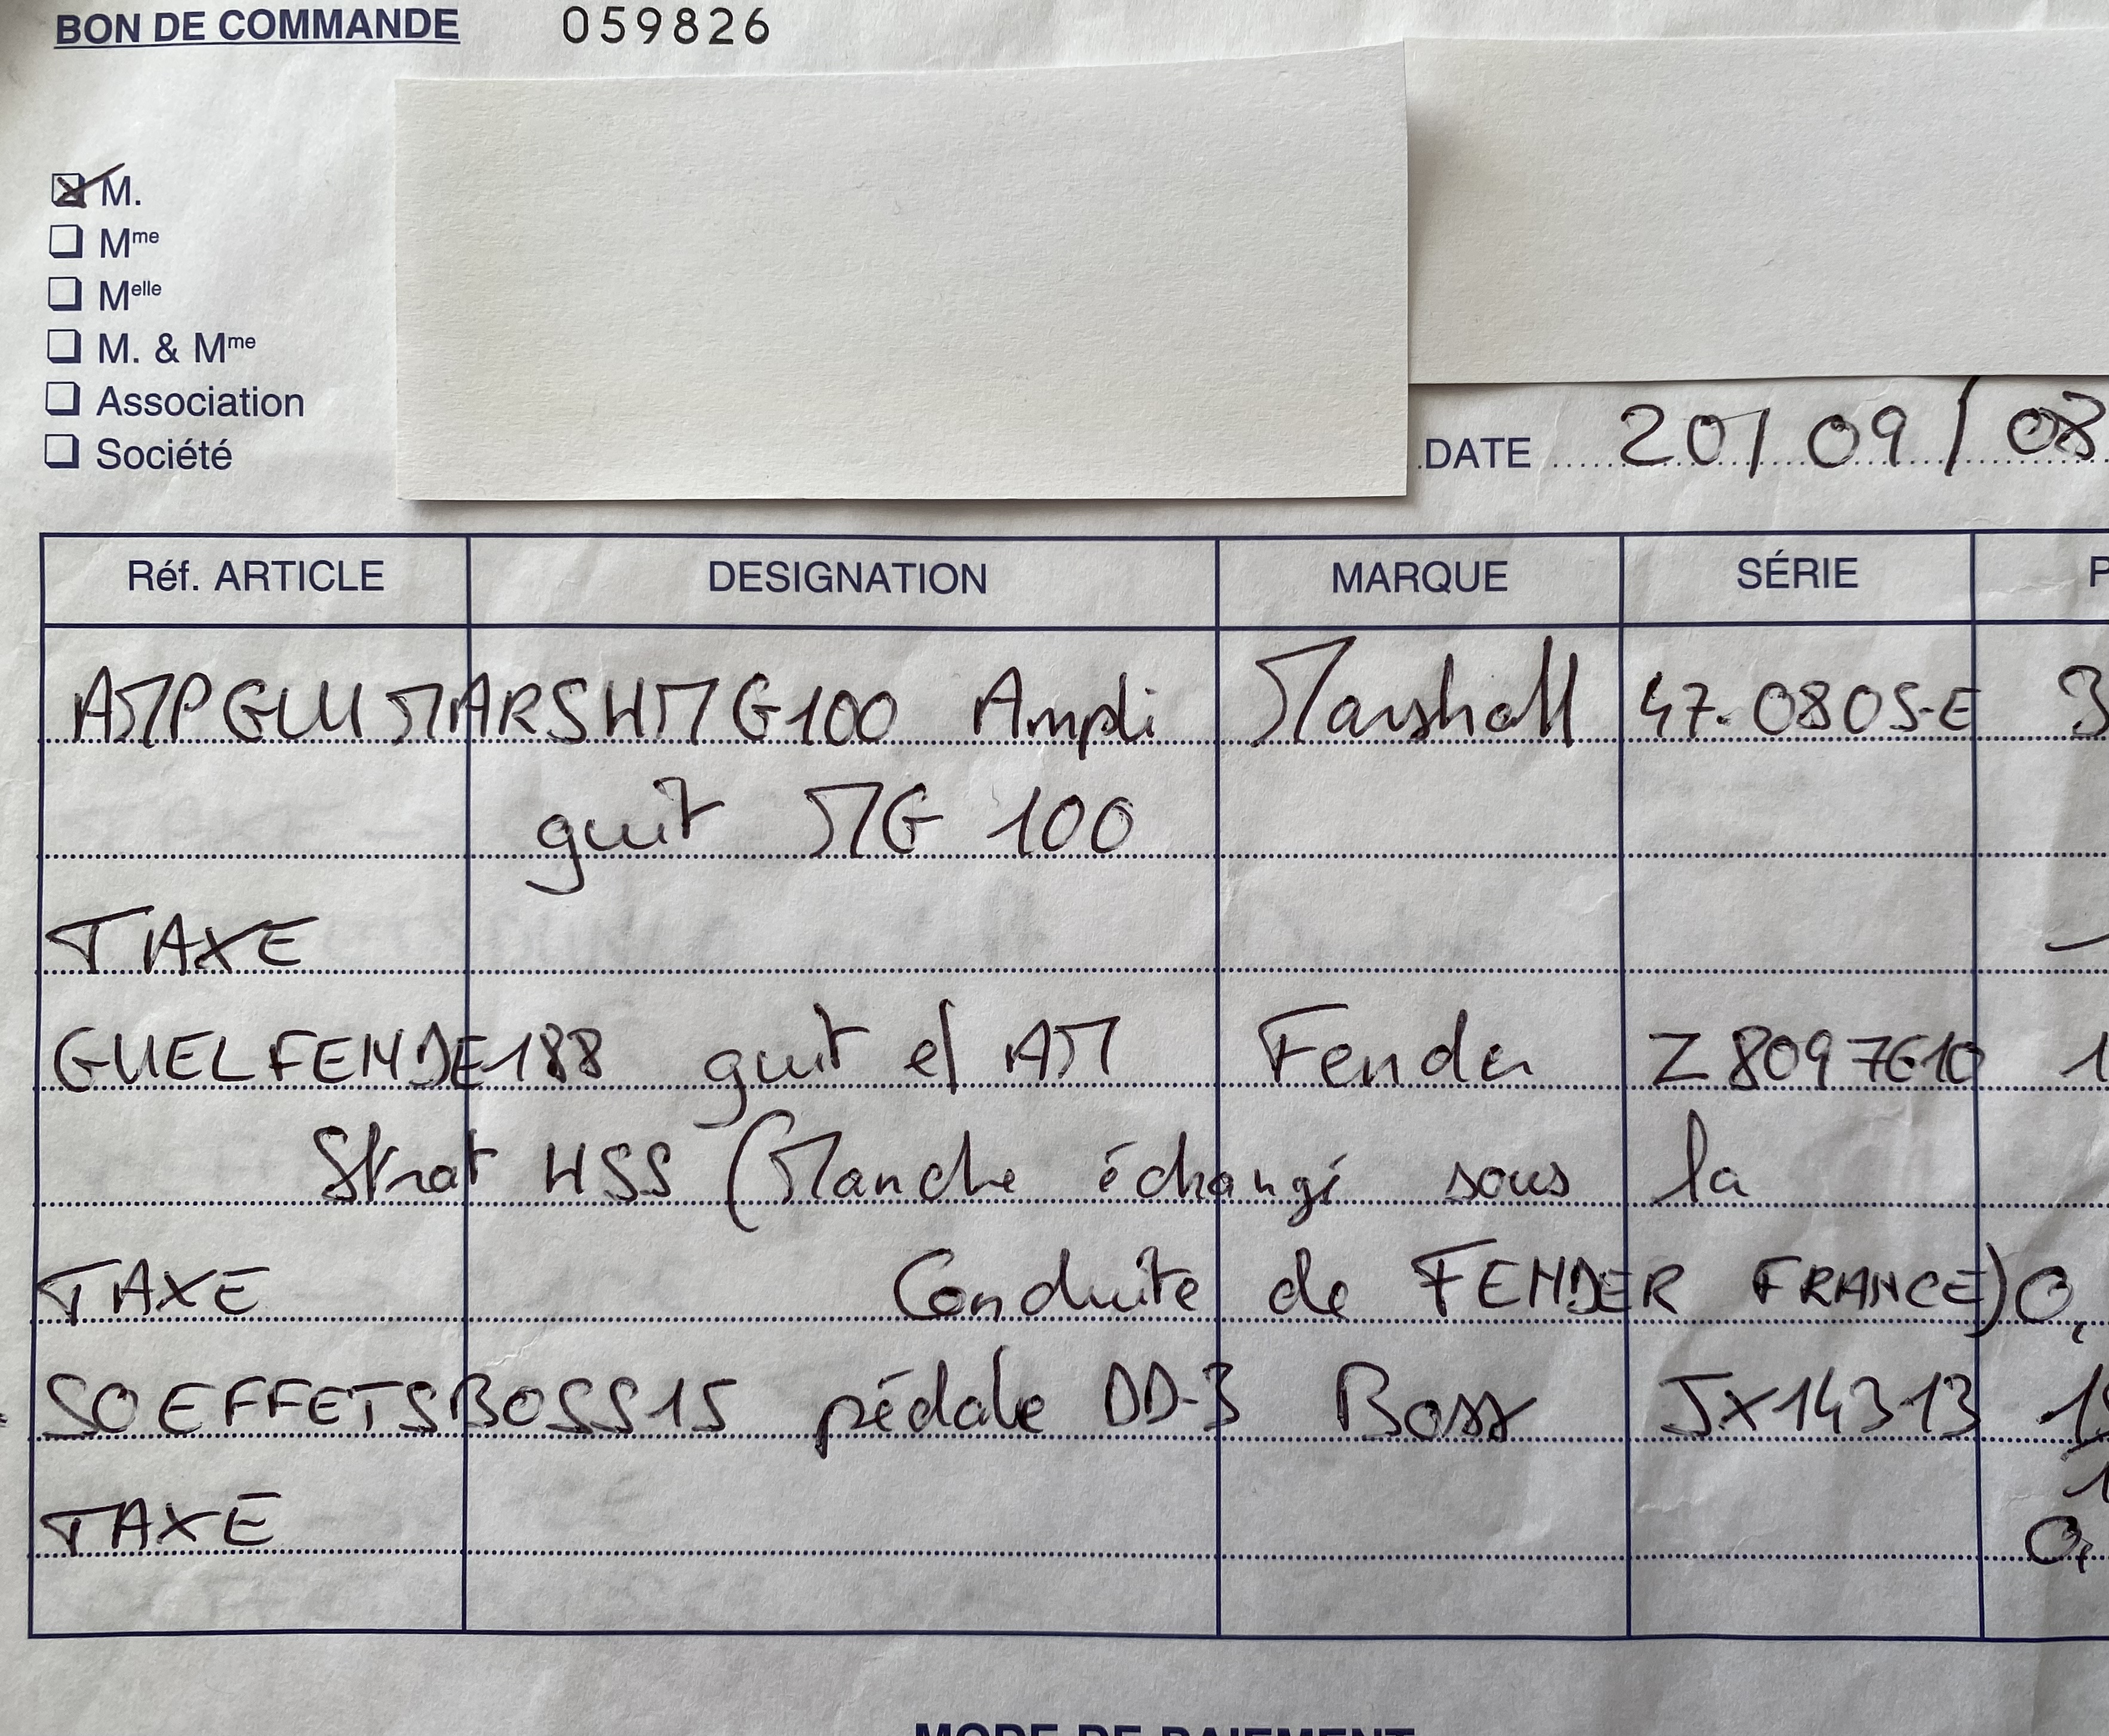 BON DE COMMANDE 059826
M.
Mme
Melle
M. & Mme
Association
Société
DATE 20/09/08
Réf. ARTICLE DESIGNATION MARQUE SÉRIE P
AMPGUIMARSHMG100 Ampli Marshall 47.0805-E 3
guit MG 100
TAXE
GUELFENDE188 guit el AM Fender Z8097610 1
Strat HSS (Manche échangé sous la
TAXE Conduite de FENDER FRANCE) 0,
SOEFFETSBOSS15 pédale DD-3 Boss JX14313
1
TAXE 0,
MODE DE PAIEMENT